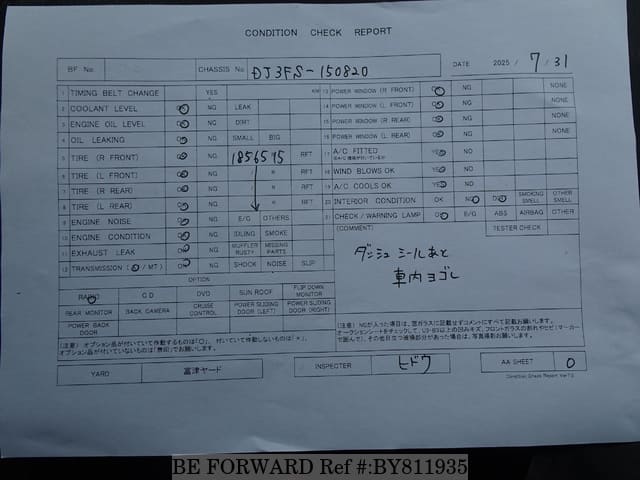 CONDITION CHECK REPORT
BF No. CHASSIS No. DJ3FS-150820 DATE 2025/7/31
1 TIMING BELT CHANGE YES KM
2 COOLANT LEVEL OK NG LEAK
3 ENGINE OIL LEVEL OK NG DIRT
4 OIL LEAKING OK NG SMALL BIG
5 TIRE (R FRONT) OK NG 1856515 RFT
6 TIRE (L FRONT) OK NG RFT
7 TIRE (R REAR) OK NG RFT
8 TIRE (L REAR) OK NG RFT
9 ENGINE NOISE OK NG E/G OTHERS
10 ENGINE CONDITION OK NG IDLING SMOKE
11 EXHAUST LEAK OK NG MUFFLER RUSTY MISSING PARTS
12 TRANSMISSION ( / MT) OK NG SHOCK NOISE SLIP
OPTION
RADIO CD DVD SUN ROOF FLIP DOWN MONITOR
REAR MONITOR BACK CAMERA CRUISE CONTROL POWER SLIDING DOOR (LEFT) POWER SLIDING DOOR (RIGHT)
POWER BACK DOOR
(注意) オプション品が付いていて作動するものは「○」、付いていて作動しないものは「×」、
オプション品が付いていないものは「無印」でお願いします。
13 POWER WINDOW (R FRONT) OK NG NONE
14 POWER WINDOW (L FRONT) OK NG NONE
15 POWER WINDOW (R REAR) OK NG NONE
16 POWER WINDOW (L REAR) OK NG NONE
17 A/C FITTED YES NG
18 WIND BLOWS OK YES NG
19 A/C COOLS OK YES NG
20 INTERIOR CONDITION OK NG SMOKING SMELL OTHER SMELL
21 CHECK / WARNING LAMP OK E/G ABS AIRBAG OTHER
(COMMENT) TESTER CHECK
ダッシュ シールあと
車内ヨゴレ
YARD 富津ヤード INSPECTER ヒドウ AA SHEET 0
Condition Check Report Ver7.0
BE FORWARD Ref #:BY811935